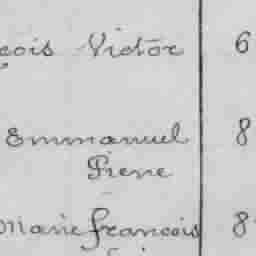 çois Victor 6
Emmanuel 8
Pierre
Marie françois 8